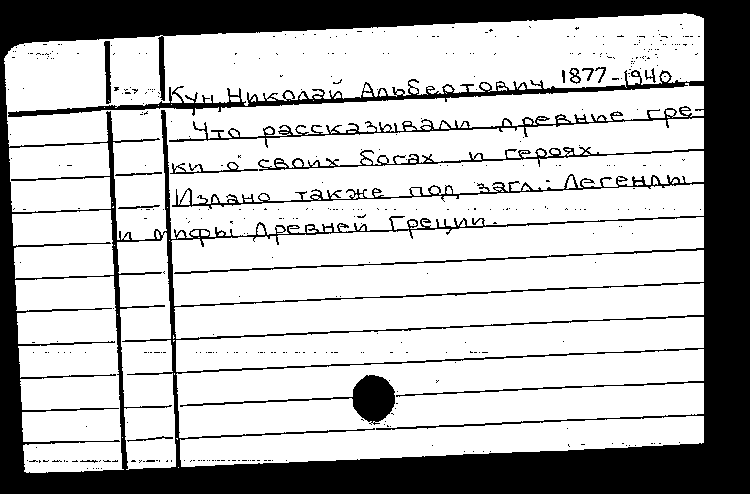 Кун, Николай Альбертович, 1877-1940.
Что рассказывали древние гре-
ки о своих богах и героях.
Издано также под загл.: Легенды
и мифы Древней Греции.